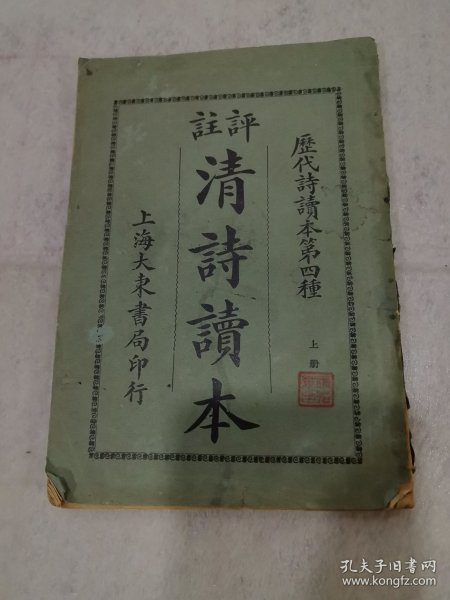 歷代詩讀本第四種
上册
評註
清詩讀本
上海大東書局印行
孔夫子旧书网
www.kongfz.com